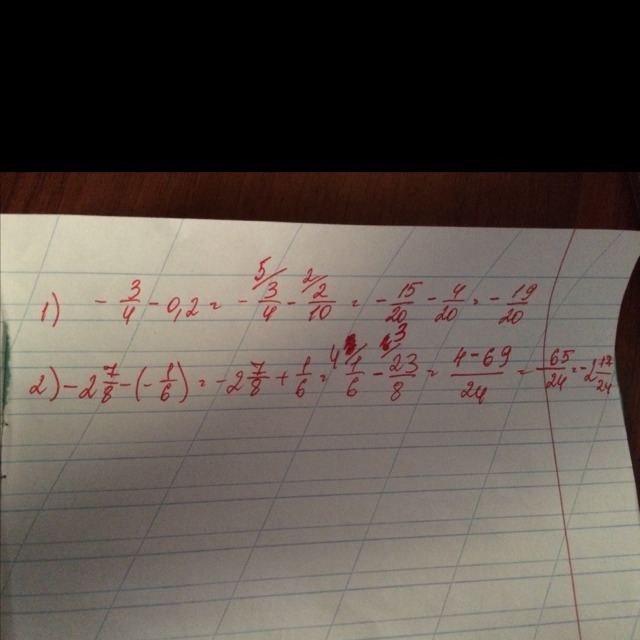 1) - 3/4 - 0,2 = - 5/ 3/4 - 2/ 2/10 = - 15/20 - 4/20 = - 19/20
2) - 2 7/8 - (- 1/6) = - 2 7/8 + 1/6 = 4/ 1/6 - 3/ 23/8 = 4-69/24 = - 65/24 = - 2 17/24